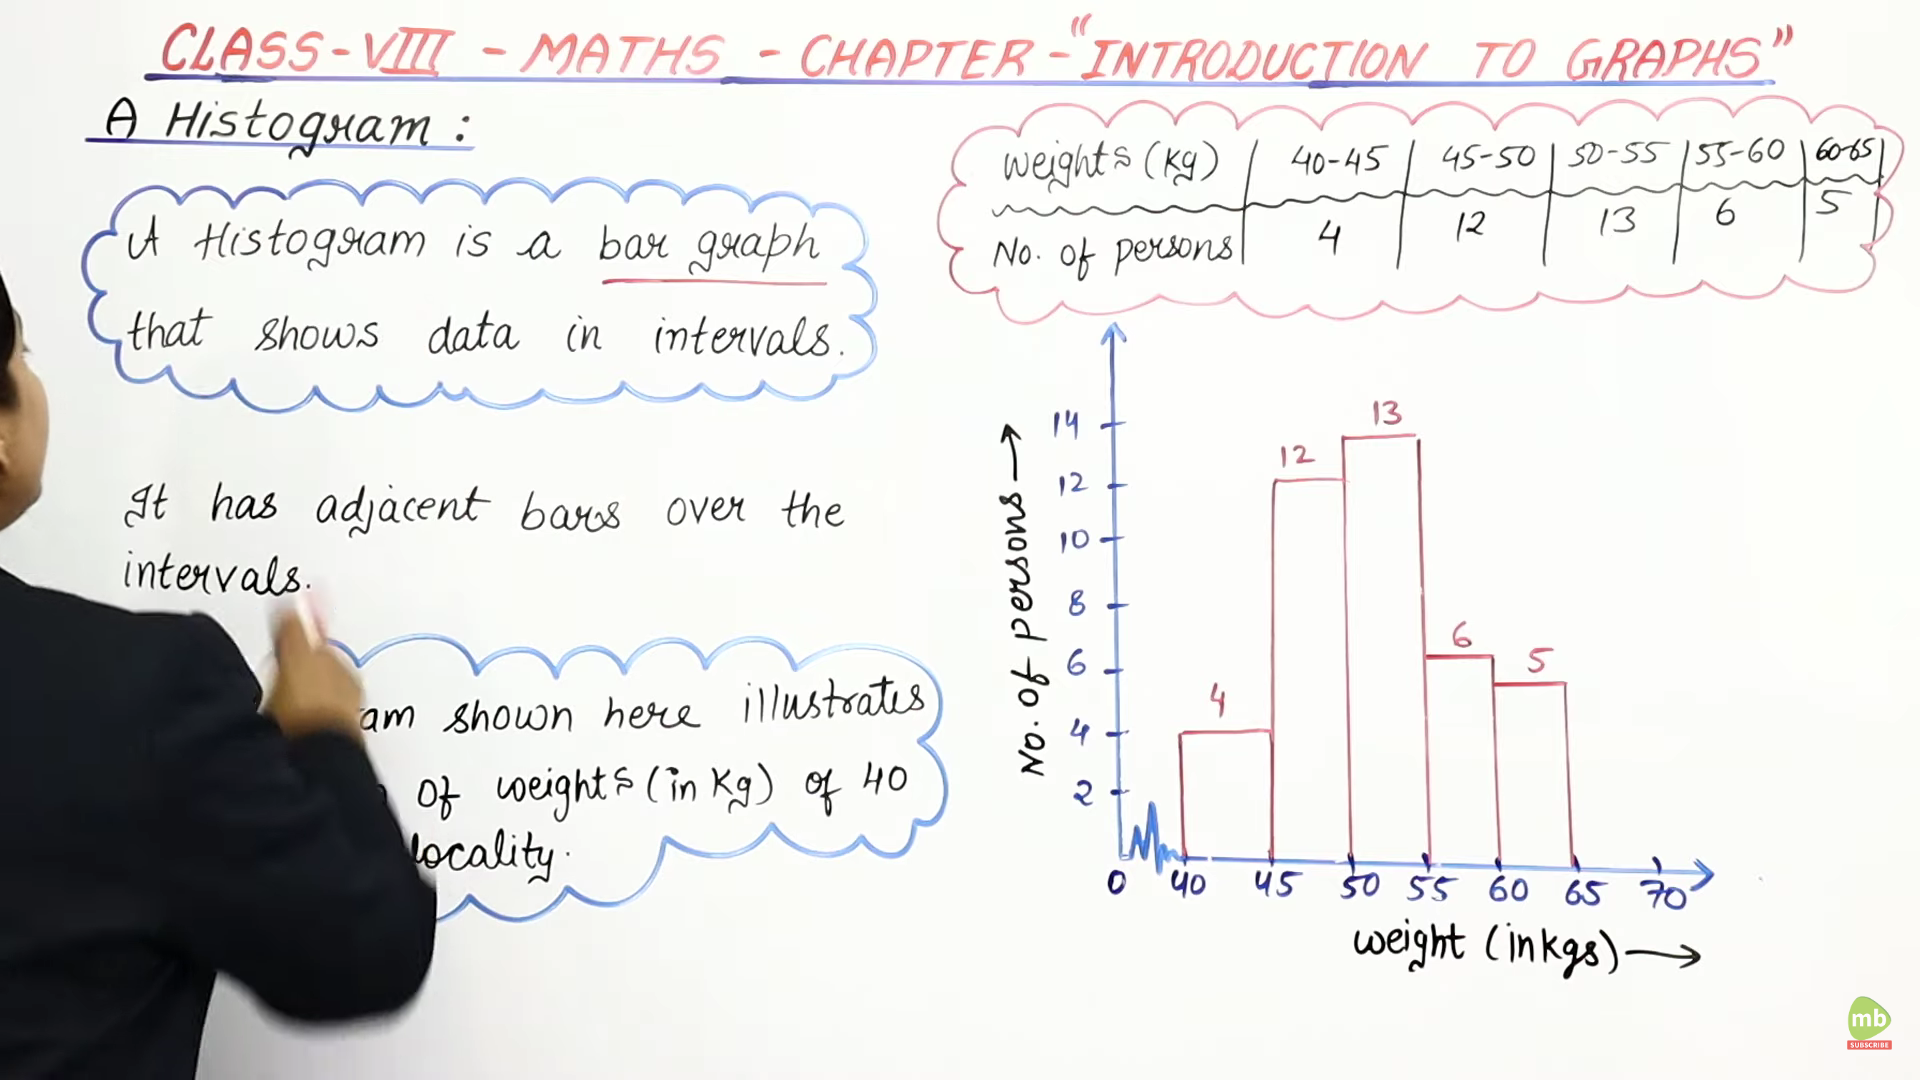 CLASS-VIII - MATHS - CHAPTER - "INTRODUCTION TO GRAPHS"
A Histogram :
A Histogram is a bar graph
that shows data in intervals.
It has adjacent bars over the
intervals.
am shown here illustrates
of weights (in Kg) of 40
locality.
weights (Kg) 40-45 45-50 50-55 55-60 60-65
No. of persons 4 12 13 6 5
No. of persons
14
12
10
8
6
4
2
4
12
13
6
5
0 40 45 50 55 60 65 70
weight (in kgs)
mb
SUBSCRIBE